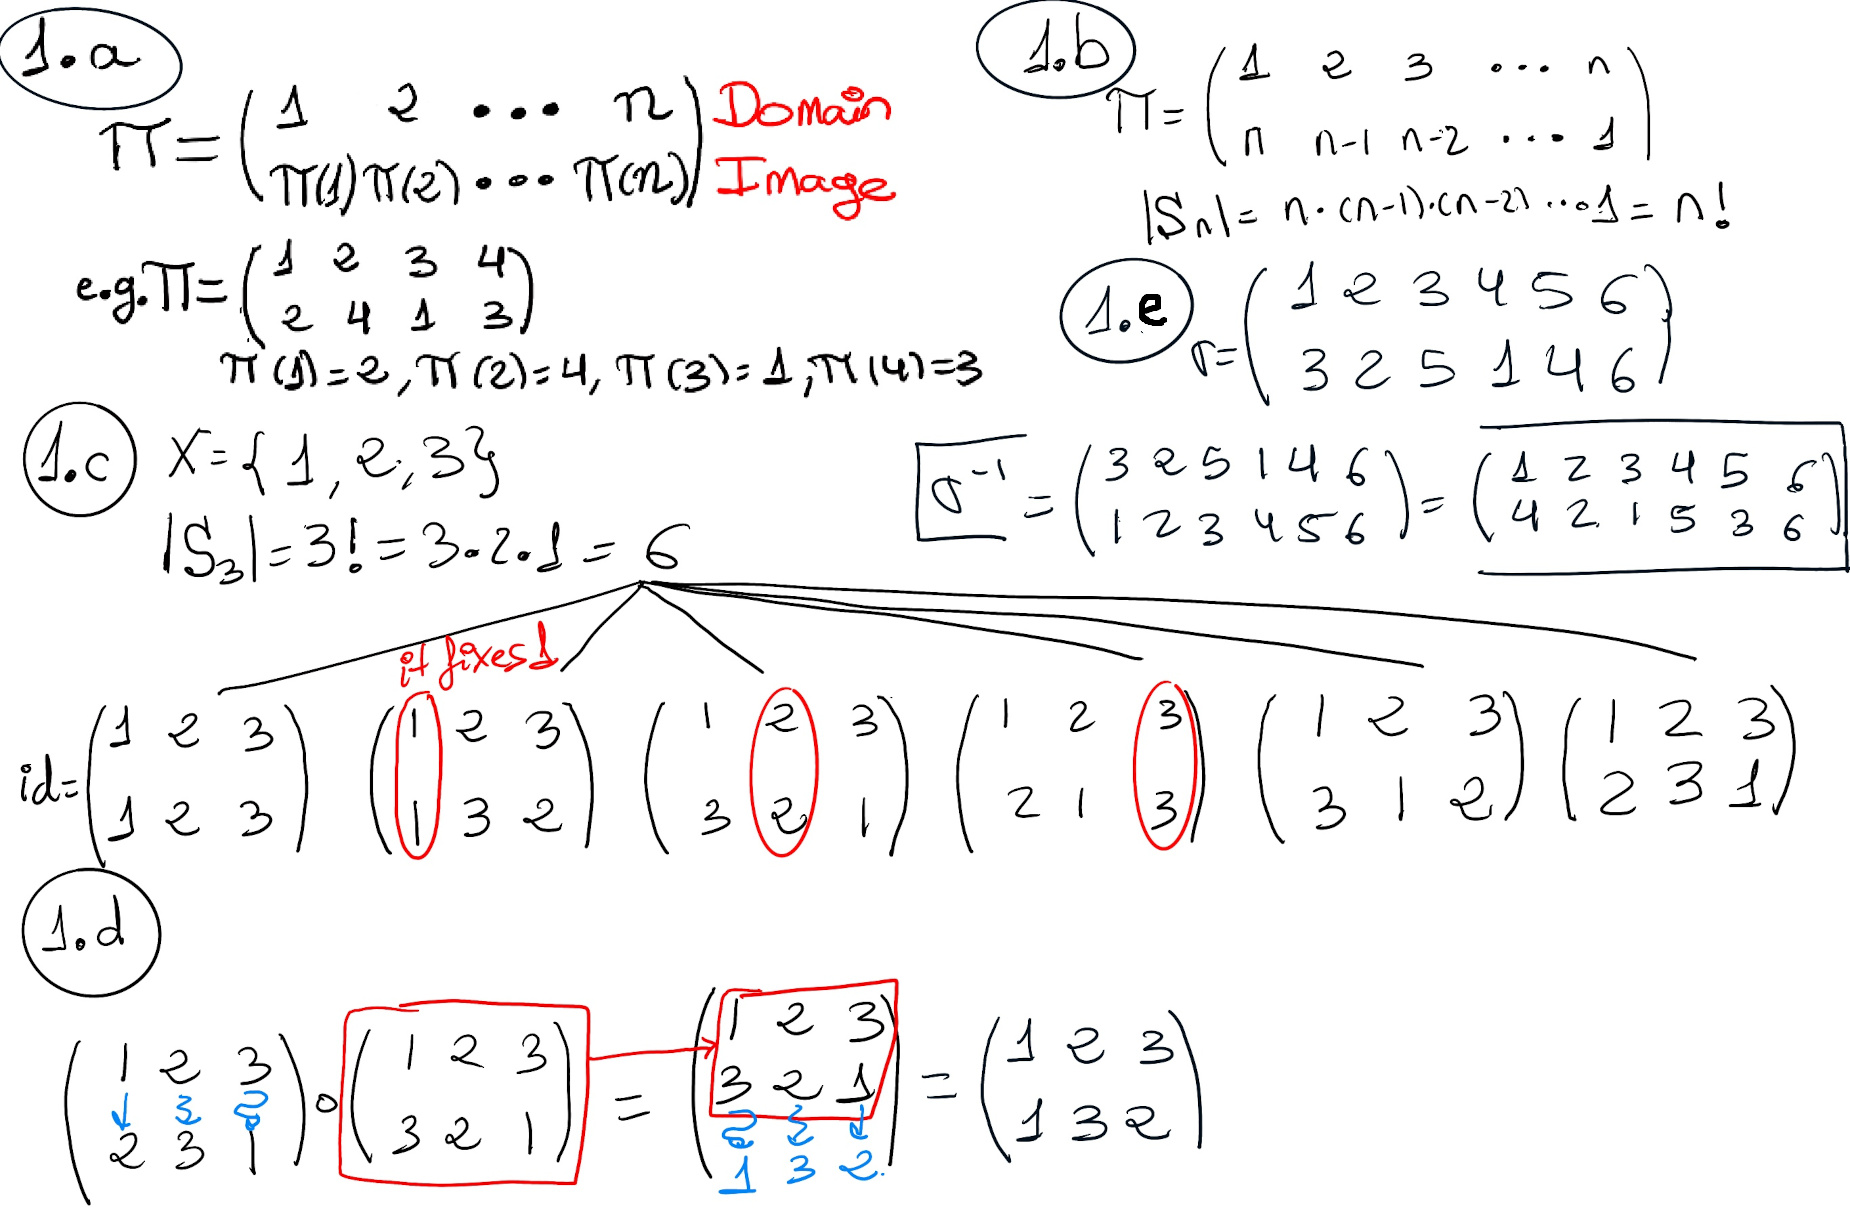 1.a
π = ( 1 2 ... n ) Domain
( π(1) π(2) ... π(n) ) Image
e.g. π = ( 1 2 3 4 )
( 2 4 1 3 )
π(1)=2, π(2)=4, π(3)=1, π(4)=3
1.b
π = ( 1 2 3 ... n )
( n n-1 n-2 ... 1 )
|Sn| = n·(n-1)·(n-2)...1 = n!
1.e
σ = ( 1 2 3 4 5 6 )
( 3 2 5 1 4 6 )
σ⁻¹ = ( 3 2 5 1 4 6 ) = ( 1 2 3 4 5 6 )
( 1 2 3 4 5 6 ) ( 4 2 1 5 3 6 )
1.c
X = {1, 2, 3}
|S3| = 3! = 3·2·1 = 6
it fixes 1
id = ( 1 2 3 ) ( 1 2 3 ) ( 1 2 3 ) ( 1 2 3 ) ( 1 2 3 ) ( 1 2 3 )
( 1 2 3 ) ( 1 3 2 ) ( 3 2 1 ) ( 2 1 3 ) ( 3 1 2 ) ( 2 3 1 )
1.d
( 1 2 3 ) ∘ ( 1 2 3 ) = ( 1 2 3 ) = ( 1 2 3 )
( 2 3 1 ) ( 3 2 1 ) ( 3 2 1 ) ( 1 3 2 )
1 3 2